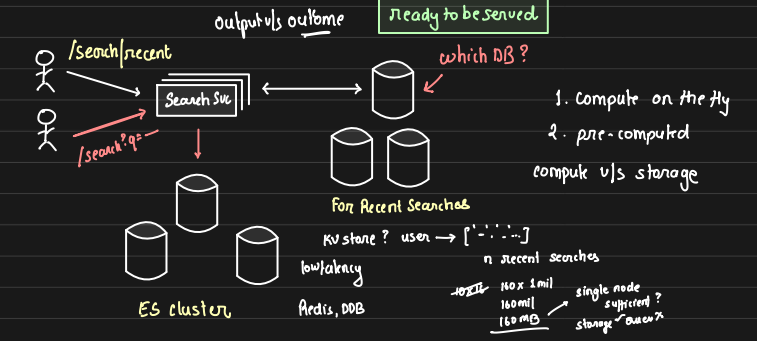 output v/s outcome
ready to be served
/search/recent
which DB?
Search Svc
/search?q=-
1. compute on the fly
2. pre-computed
compute v/s storage
For Recent Searches
KV store? user → ['-','-'...]
n recent searches
low latency
Redis, DDB
160 x 1mil
160mil
160 MB
single node
sufficient?
storage
ES cluster